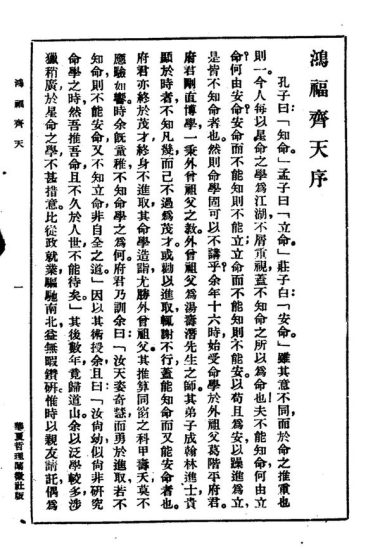 鴻福齊天序
孔子曰「知命。」孟子曰「立命。」莊子曰「安命。」雖其意不同，而於命之推重也
則一。今人每以星命之學爲江湖，不屑重視，蓋不知命之所以爲命也。夫不能知命，何由立
命？何由安命？安命而不能知，則不能立；立命而不能知，則不能安。以苟且爲安，以躁進爲立，
是皆不知命者也。然則命學固可以不講乎？余年十六時，始受命學於外祖父葛階平府君。
府君剛直博學，一乘外曾祖父之敎。外曾祖父爲湯壽潛先生之師，其弟子成翰林進士，貴
顯於時者，不知凡幾，而己不過爲茂才，或勸以進取，輒謝不行，蓋能知命而又能安命者也。
府君亦終於茂才，終身不進取，其命學造詣，尤勝外曾祖父。其推算同窗之科甲壽夭，莫不
應驗如響。時余旣童稚，不知命學之爲何。府君乃訓余曰：「汝天姿奇慧，而勇於進取，若不
知命，則不能安命，又不知立命，非自全之道。」因以其術授余，且曰：「汝尙幼，似尙非硏究
命學之時，然吾推吾命，且不久於人世，不能待矣。」其後數年，竟歸道山。余以泛學較多，涉
獵稍廣，於星命之學，不甚措意。比從政就業，驅馳南北，益無暇鑽硏。惟時以親友請託，偶爲
鴻福齊天
一
華夏哲理闡微社版